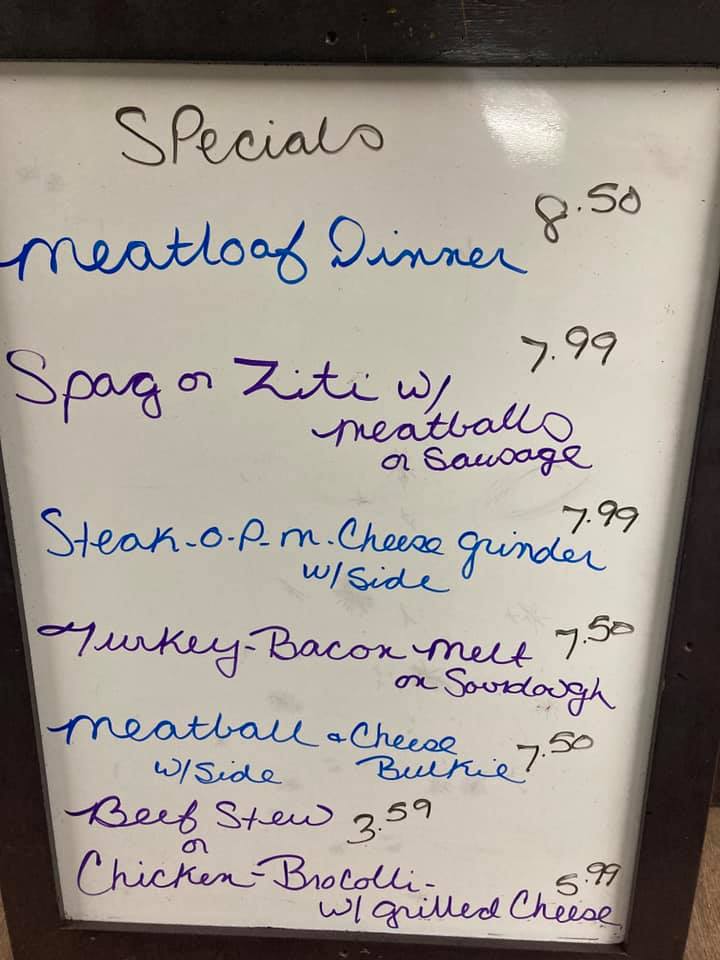 Specials
8.50
Meatloaf Dinner
7.99
Spag or Ziti w/
meatballs
or Sausage
7.99
Steak-o-P-m-Cheese grinder
w/side
Turkey-Bacon melt 7.50
on Sourdough
Meatball & Cheese
w/side Bulkie 7.50
Beef Stew 3.59
or
Chicken-Brocolli- 5.99
w/ grilled Cheese